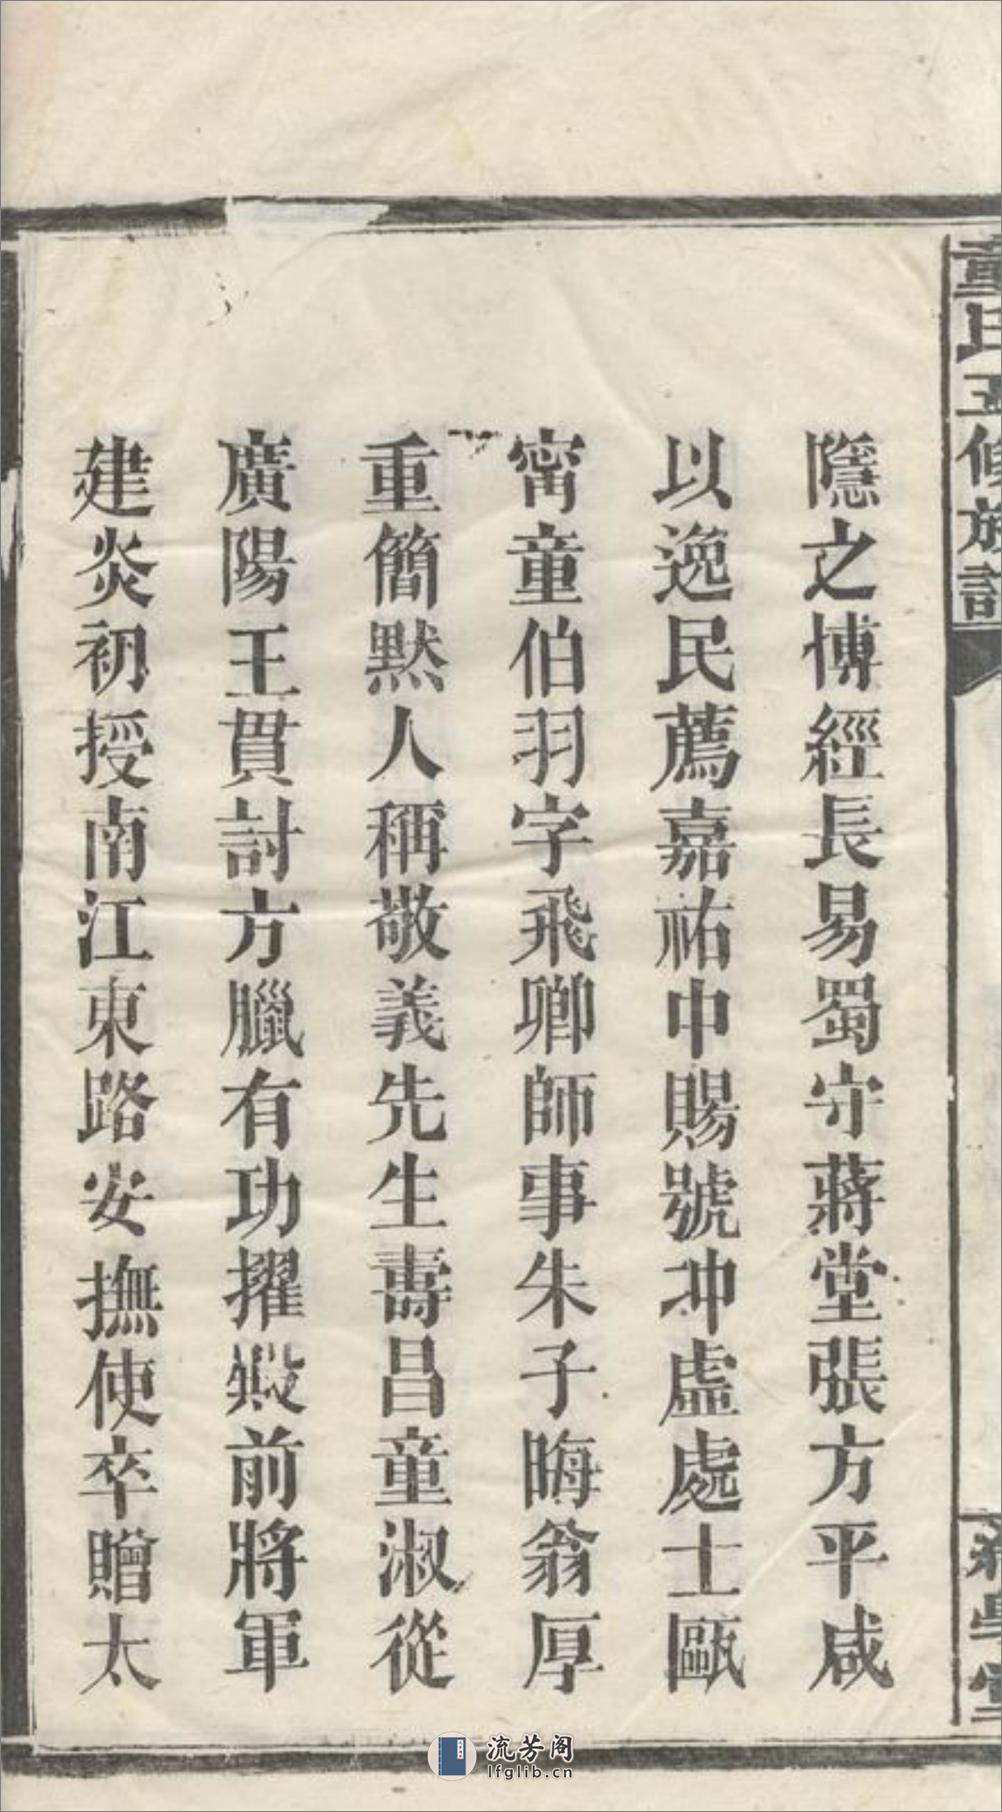 童氏五修族譜
隱之博經長易蜀守蔣堂張方平咸
以逸民薦嘉祐中賜號冲虛處士甌
甯童伯羽字飛卿師事朱子晦翁厚
重簡默人稱敬義先生壽昌童淑從
廣陽王貫討方臘有功擢殿前將軍
建炎初授南江東路安撫使卒贈太
流芳阁
lfglib.cn